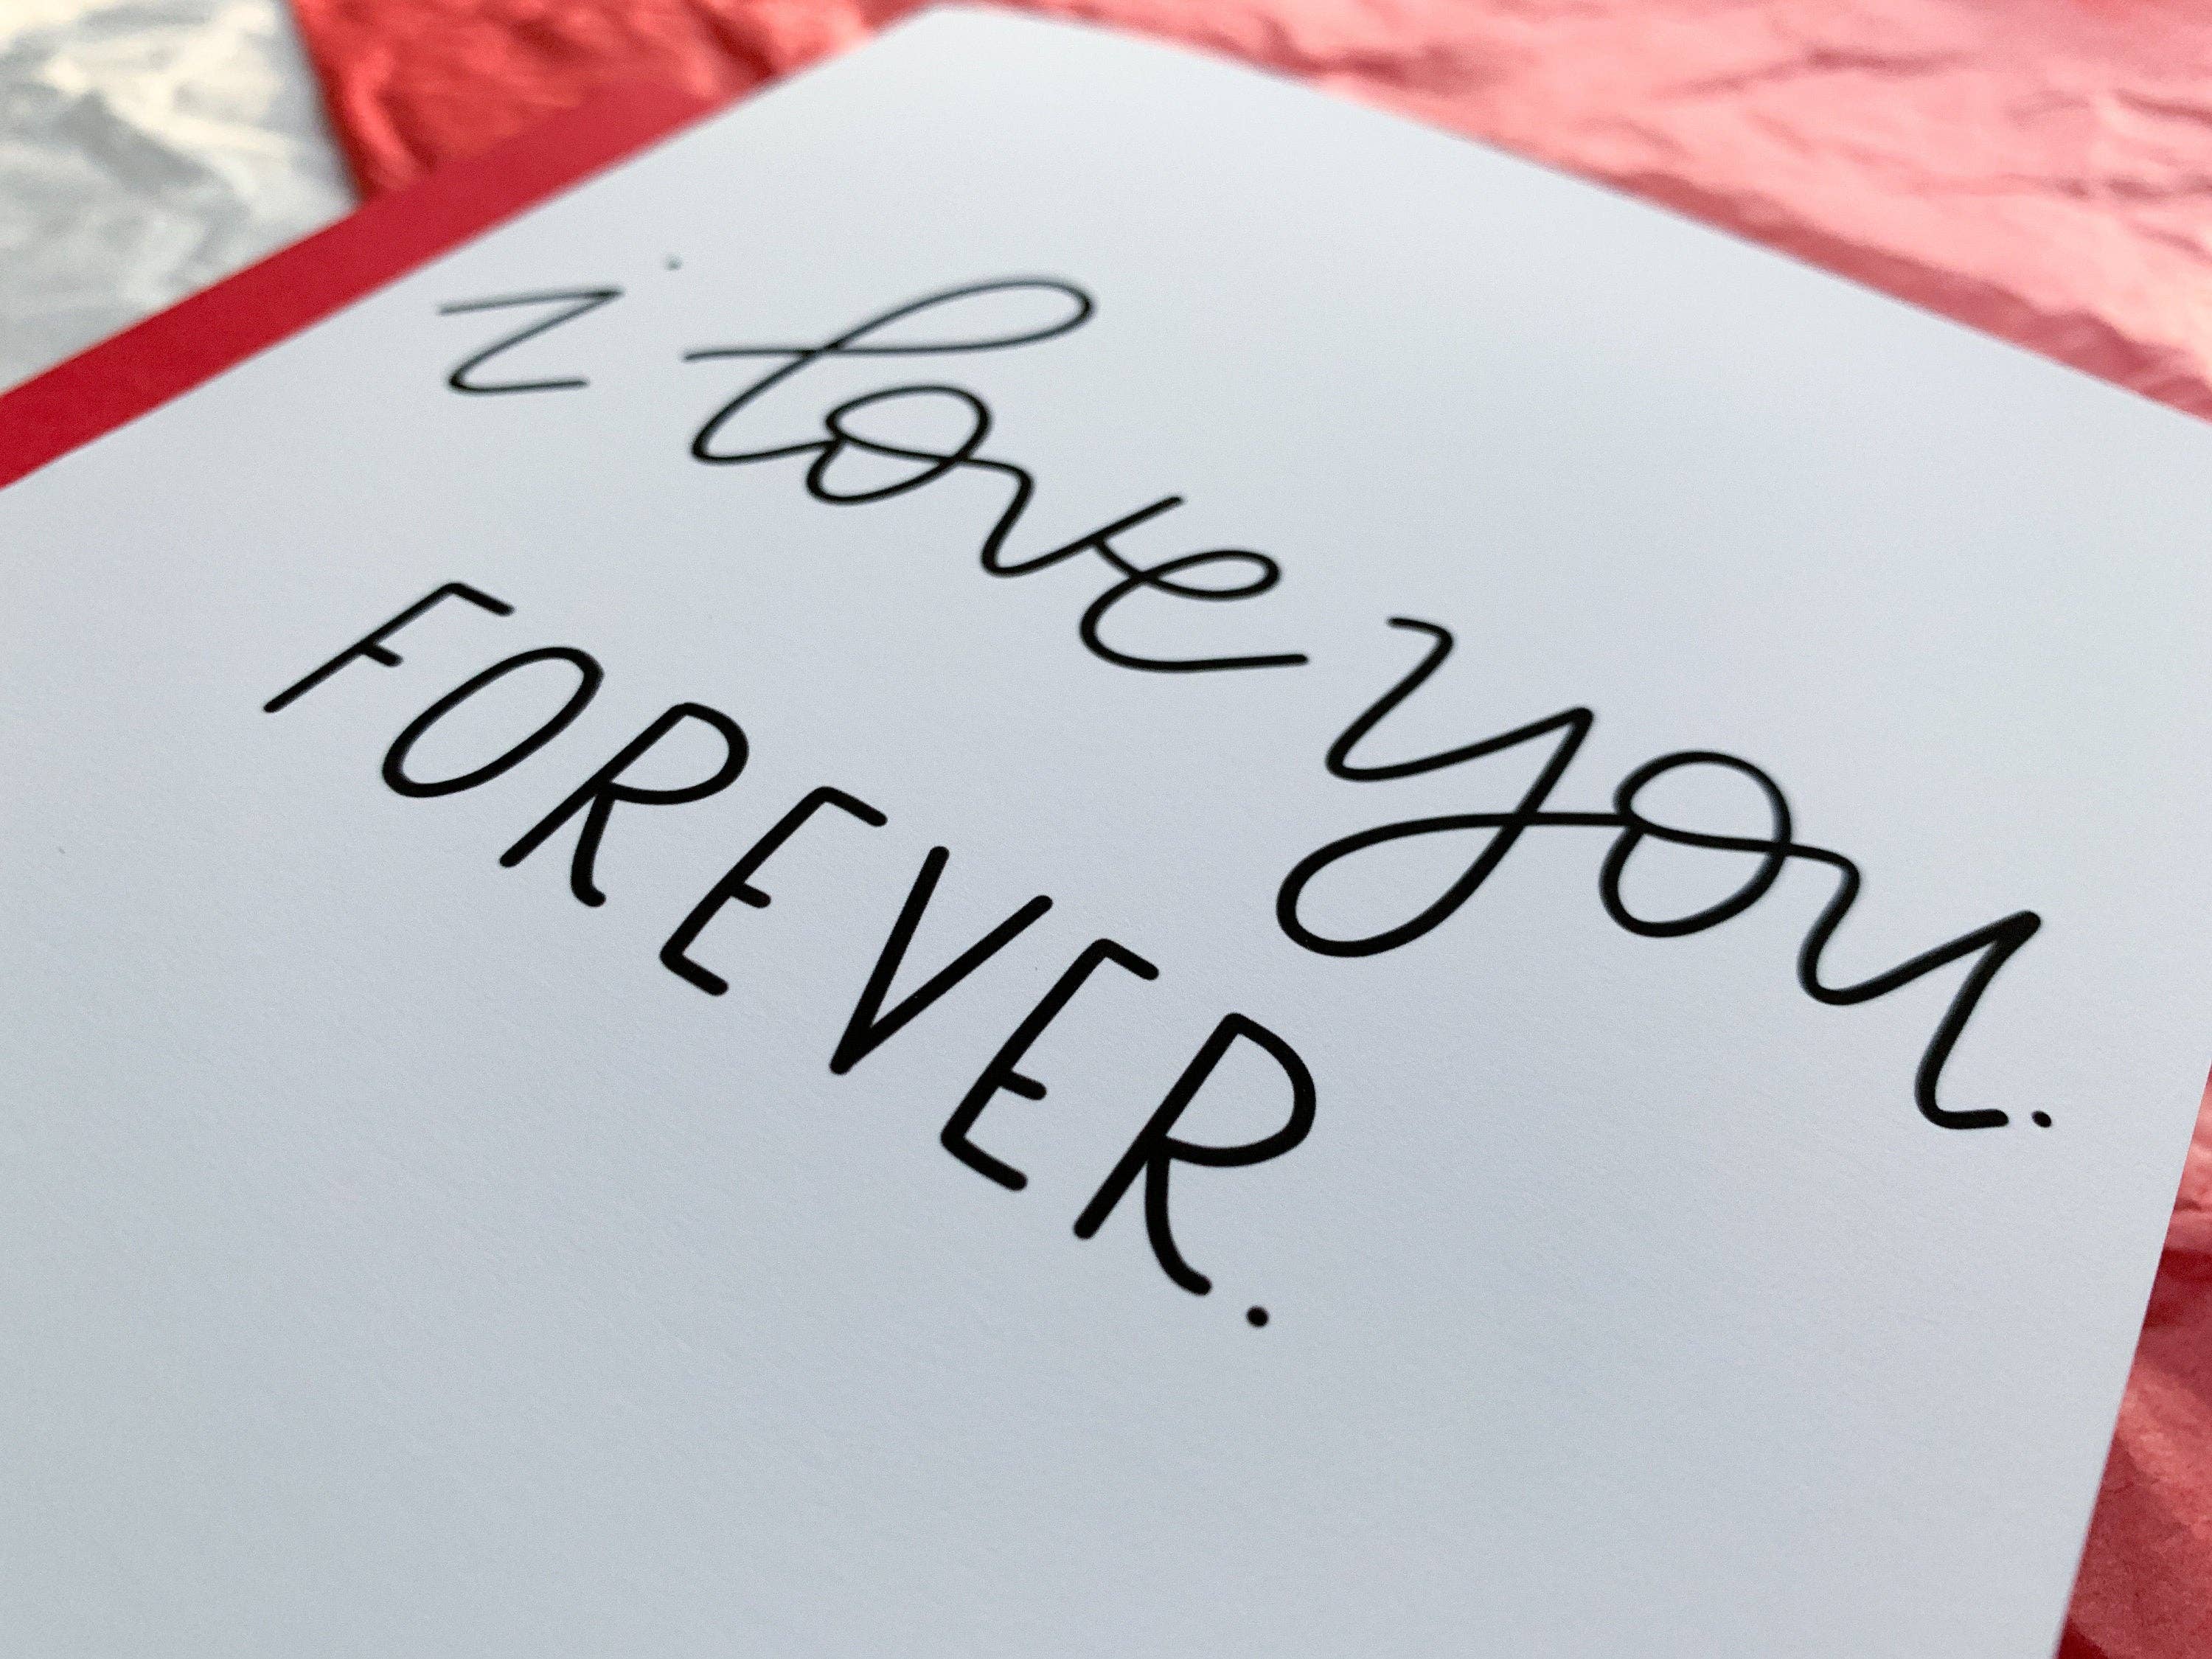 i love you.
FOREVER.